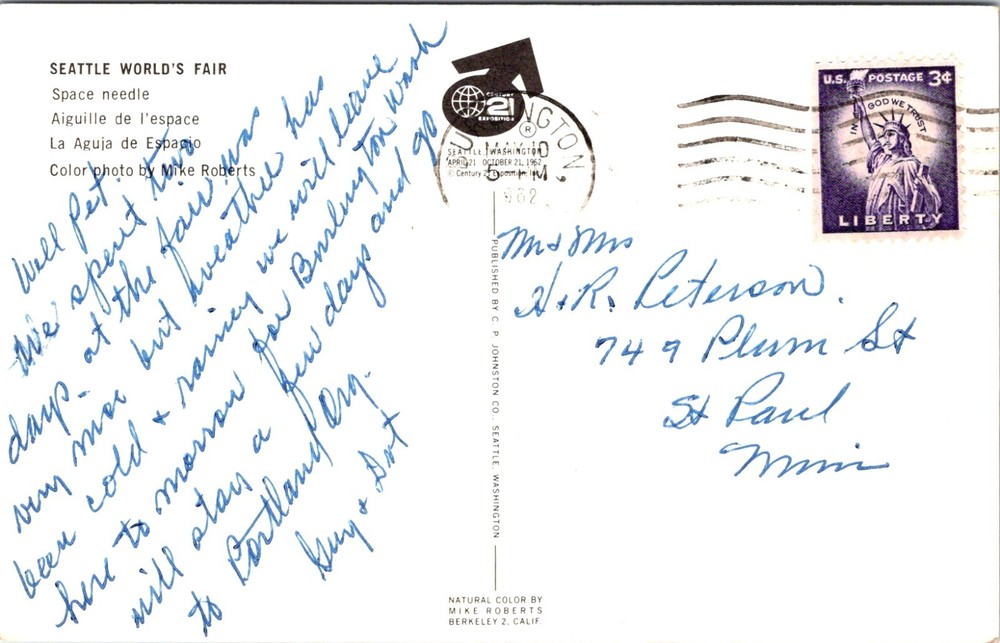 SEATTLE WORLD'S FAIR
Space needle
Aiguille de l'espace
La Aguja de Espacio
Color photo by Mike Roberts
Well Pet.
We spent two
days at the fair was
very nice but weather has
been cold & rainy we will leave
here to morrow for Burlington Wash
will stay a few days and go
to Portland Org.
Guy & Dot
CENTURY
21
EXPOSITION
®
SEATTLE, WASHINGTON
APRIL 21 OCTOBER 21, 1962
© Century 21 Exposition, Inc.
WASHINGTON
MAY 10
PM
1962
U.S. POSTAGE 3¢
IN GOD WE TRUST
LIBERTY
Mr & Mrs
H. R. Peterson.
749 Plum St
St Paul
Minn
PUBLISHED BY C. P. JOHNSTON CO., SEATTLE, WASHINGTON
NATURAL COLOR BY
MIKE ROBERTS
BERKELEY 2, CALIF.